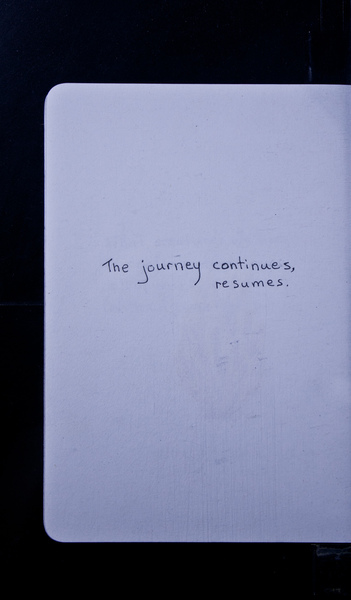 The journey continues,
resumes.